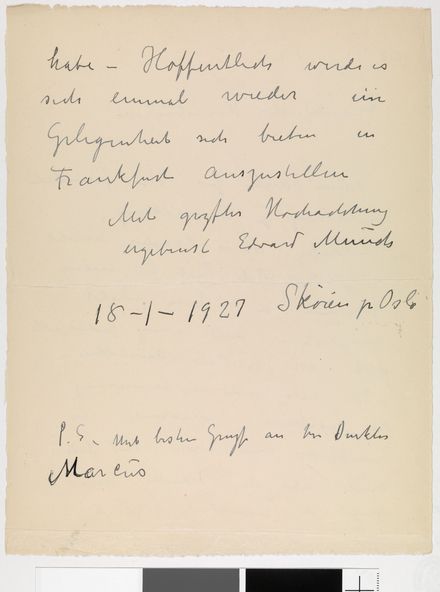 habe – Hoffentlich wird es
sich einmal wieder ein
Gelegenheit sich bieten in
Frankfurt auszustellen
Mit größter Hochachtung
ergebenst Edvard Munch
18–1–1927 Skøien pr Oslo
P.S. Mit besten Gruß an den Direktor
Marcus